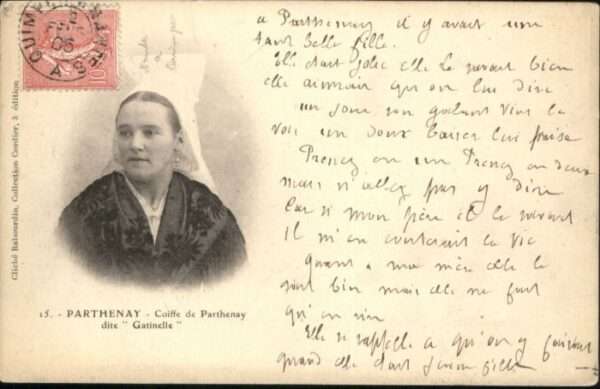 QUIMPER
05
Cliché Rabourdin, Collection Cordier, 3 édition
15. - PARTHENAY - Coiffe de Parthenay
dite " Gatinelle "
a Parthenay il y avait une
tant belle fille.
Elle était jolie elle le savait bien
elle aimait qu on lui dise
un jour son galant vint la
voir un doux baiser lui
Prenez en un Prenez en deux
mais n'allez pas y dire
Car si mon père il le savait
Il m'en couterait la vie
Quant a ma mère elle le
sait bien mais elle ne fait
qu'en rire
Elle se rappelle a qu'on y faisait
quand elle était jeune fille